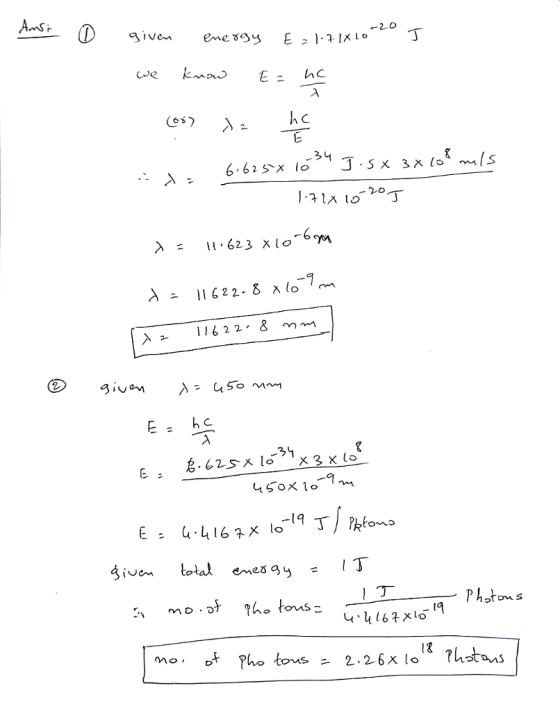 Ans: ① given energy E = 1.71×10⁻²⁰ J
we know E = hc/λ
(or) λ = hc/E
∴ λ = 6.625×10⁻³⁴ J.s × 3×10⁸ m/s / 1.71×10⁻²⁰ J
λ = 11.623 ×10⁻⁶ m
λ = 11622.8 ×10⁻⁹ m
λ = 11622.8 nm
② given λ = 450 nm
E = hc/λ
E = 6.625×10⁻³⁴ × 3×10⁸ / 450×10⁻⁹ m
E = 4.4167×10⁻¹⁹ J/Photons
given total energy = 1 J
no. of photons = 1 J / 4.4167×10⁻¹⁹ Photons
no. of Photons = 2.26×10¹⁸ Photons